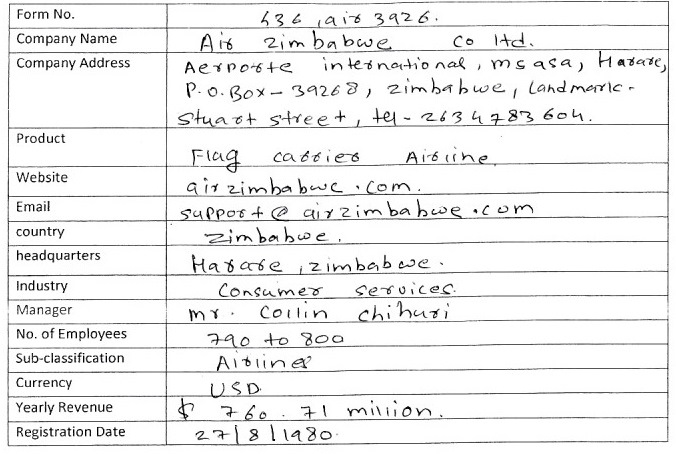 Form No. 636, air 3926.
Company Name Air zimbabwe co ltd.
Company Address Aerporte international, msasa, Harare,
P.O. Box - 39268, zimbabwe, Landmark -
Stuart street, tel - 2634783604.
Product Flag carrier Airline
Website airzimbabwe.com.
Email support@airzimbabwe.com
country Zimbabwe.
headquarters Harare, zimbabwe.
Industry Consumer services
Manager mr. Collin chihuri
No. of Employees 790 to 800
Sub-classification Airlines
Currency USD
Yearly Revenue $ 760.71 million.
Registration Date 27/8/1980.